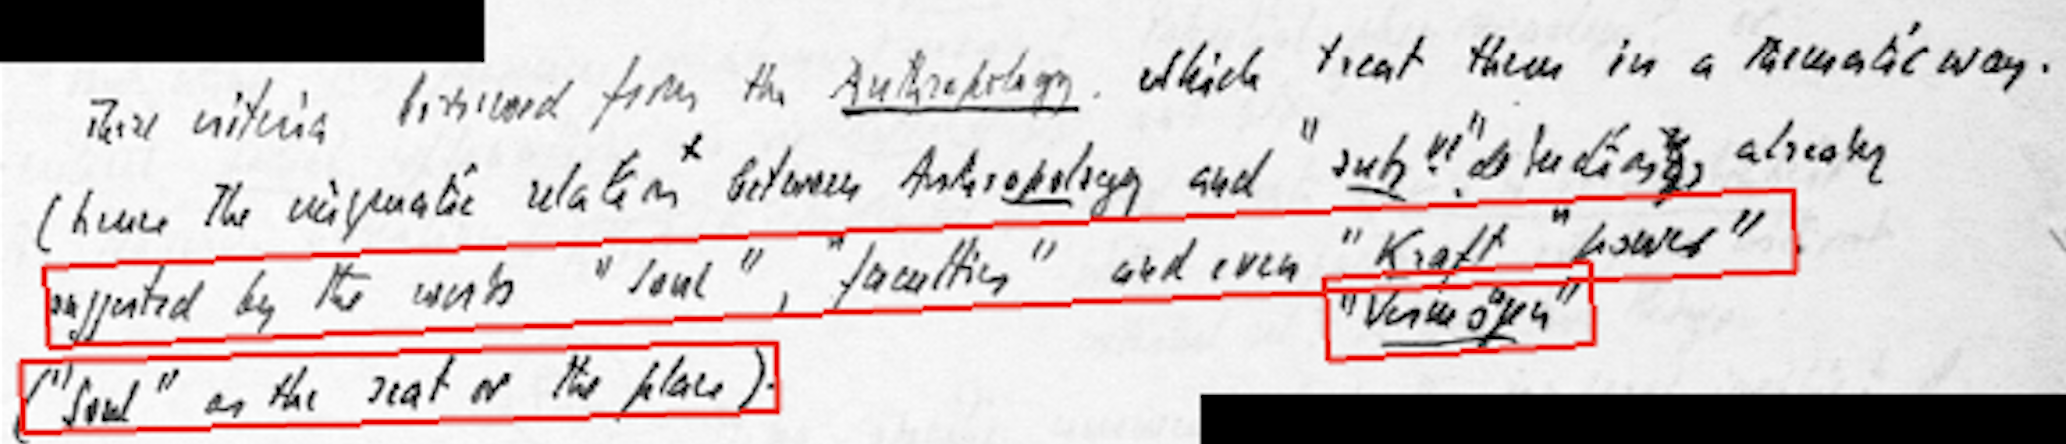 These criteria borrowed from the Anthropology. which treat them in a thematic way.
(hence the enigmatic relation between Anthropology and "subj" already
suggested by the words "Soul", "faculties" and even "Kraft "power"
"Vermögen"
("Soul" as the seat or the place).